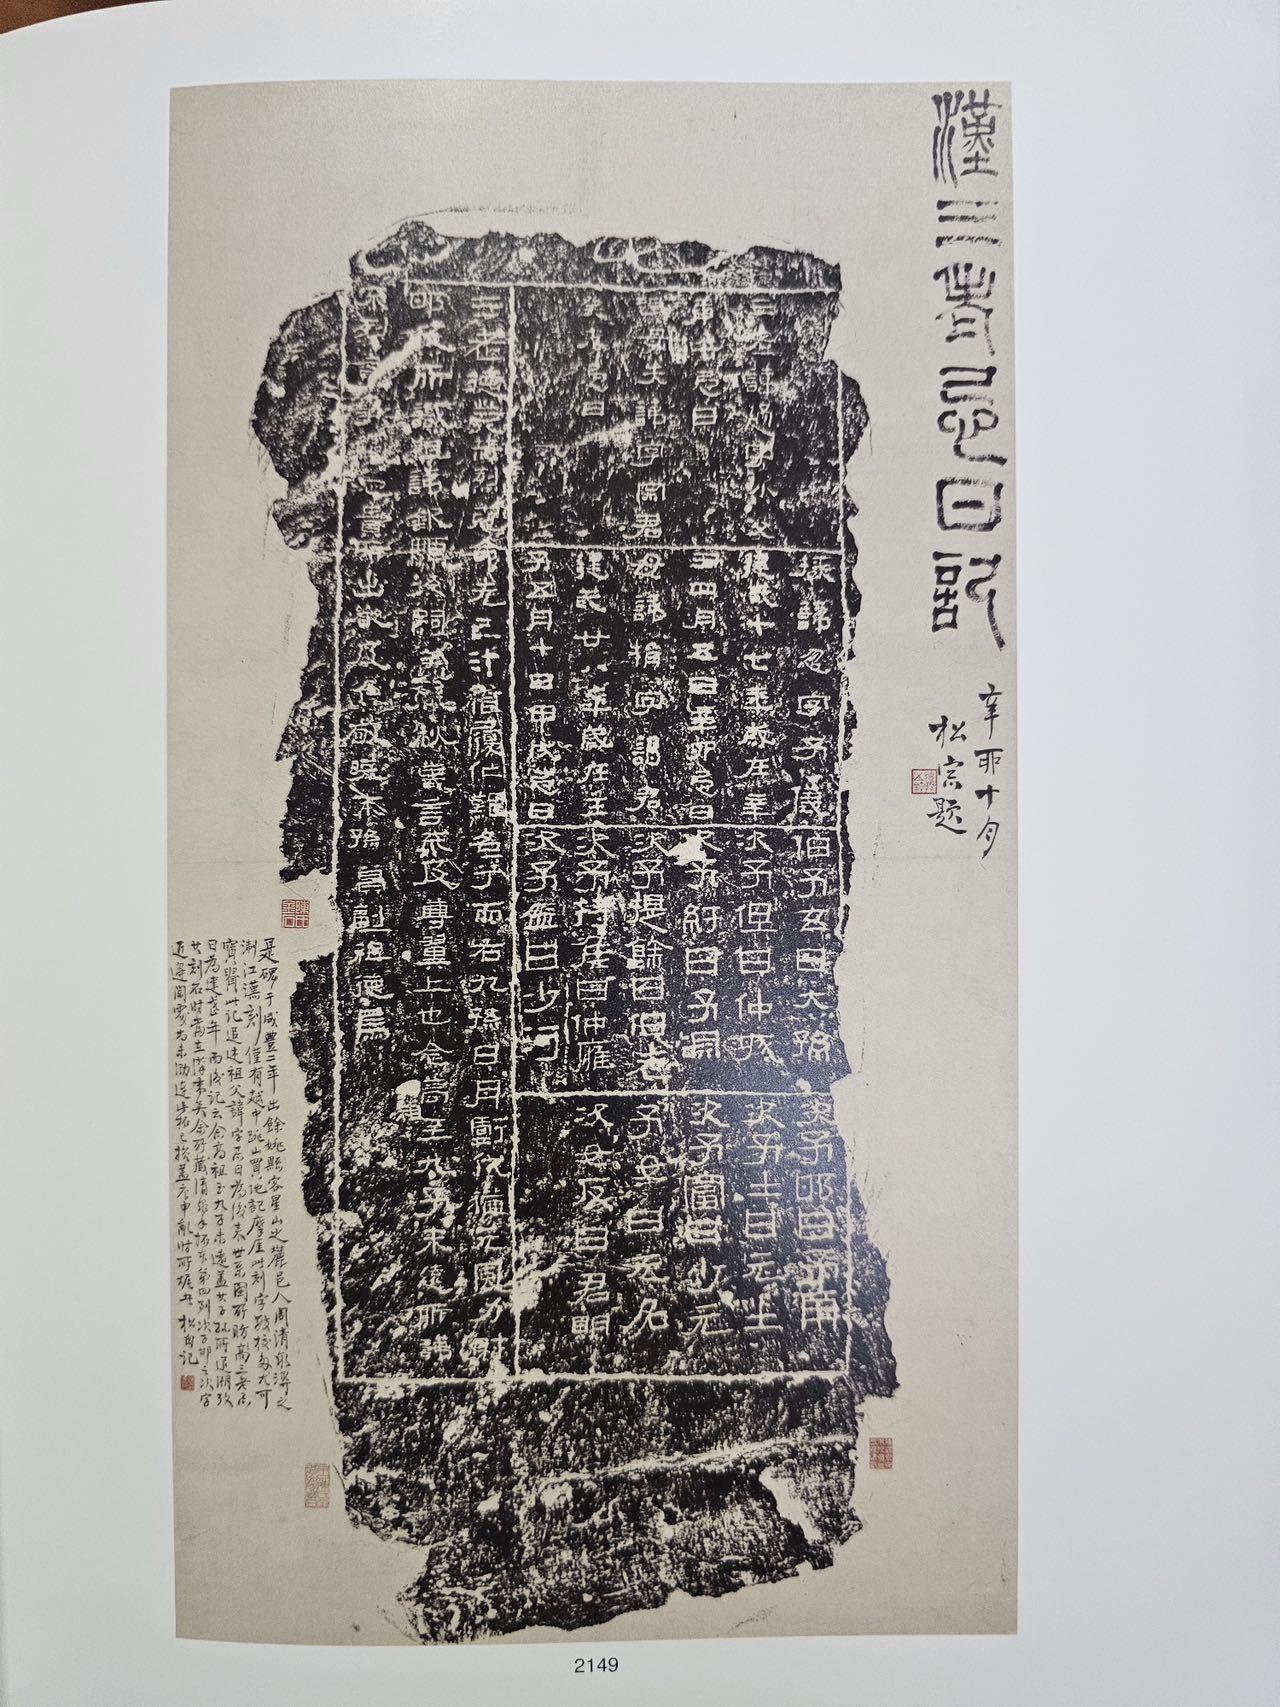 漢三老忌日記
辛酉十月
松窗題
三老諱通字小父
庚午忌日
祖母失諱字宗君
癸未忌日
掾諱忽字子儀
建武十七年歲在辛
丑四月五日辛卯忌日
母諱捐字謁君
建武廿八年歲在壬
子五月十日甲戌忌日
伯子玄曰大孫
次子但曰仲城
次子紆曰子淵
次子提餘曰伯老
次子持侯曰仲雍
次子盈曰少河
次子邯曰子南
次子士曰元士
次子富曰少元
子女曰无名
次女反曰君明
三老德業赫烈克命先己汁稽履仁難名兮而右九孫日月虧代猶元風力射
邛及所識祖諱欽顯後嗣蓋春秋義言不及尊翼上也念高祖至九子未遠所諱
不列言事觸忌貴所出嚴及焦敬曉末孫冀副祖德焉
是碑于咸豐二年出餘姚縣客星山之麓邑人周清泉得之
浙江漢刻僅有越中跳山買地記摩崖此刻字較多尤可
寶貴此記追述祖父諱字忌日為後來世系圖所昉
日為建武年而後記云念高祖至九子未遠蓋其子孫所追溯
其刻石時當在余所藏清泉手拓本第四列次子邯之次字
松窗記
2149